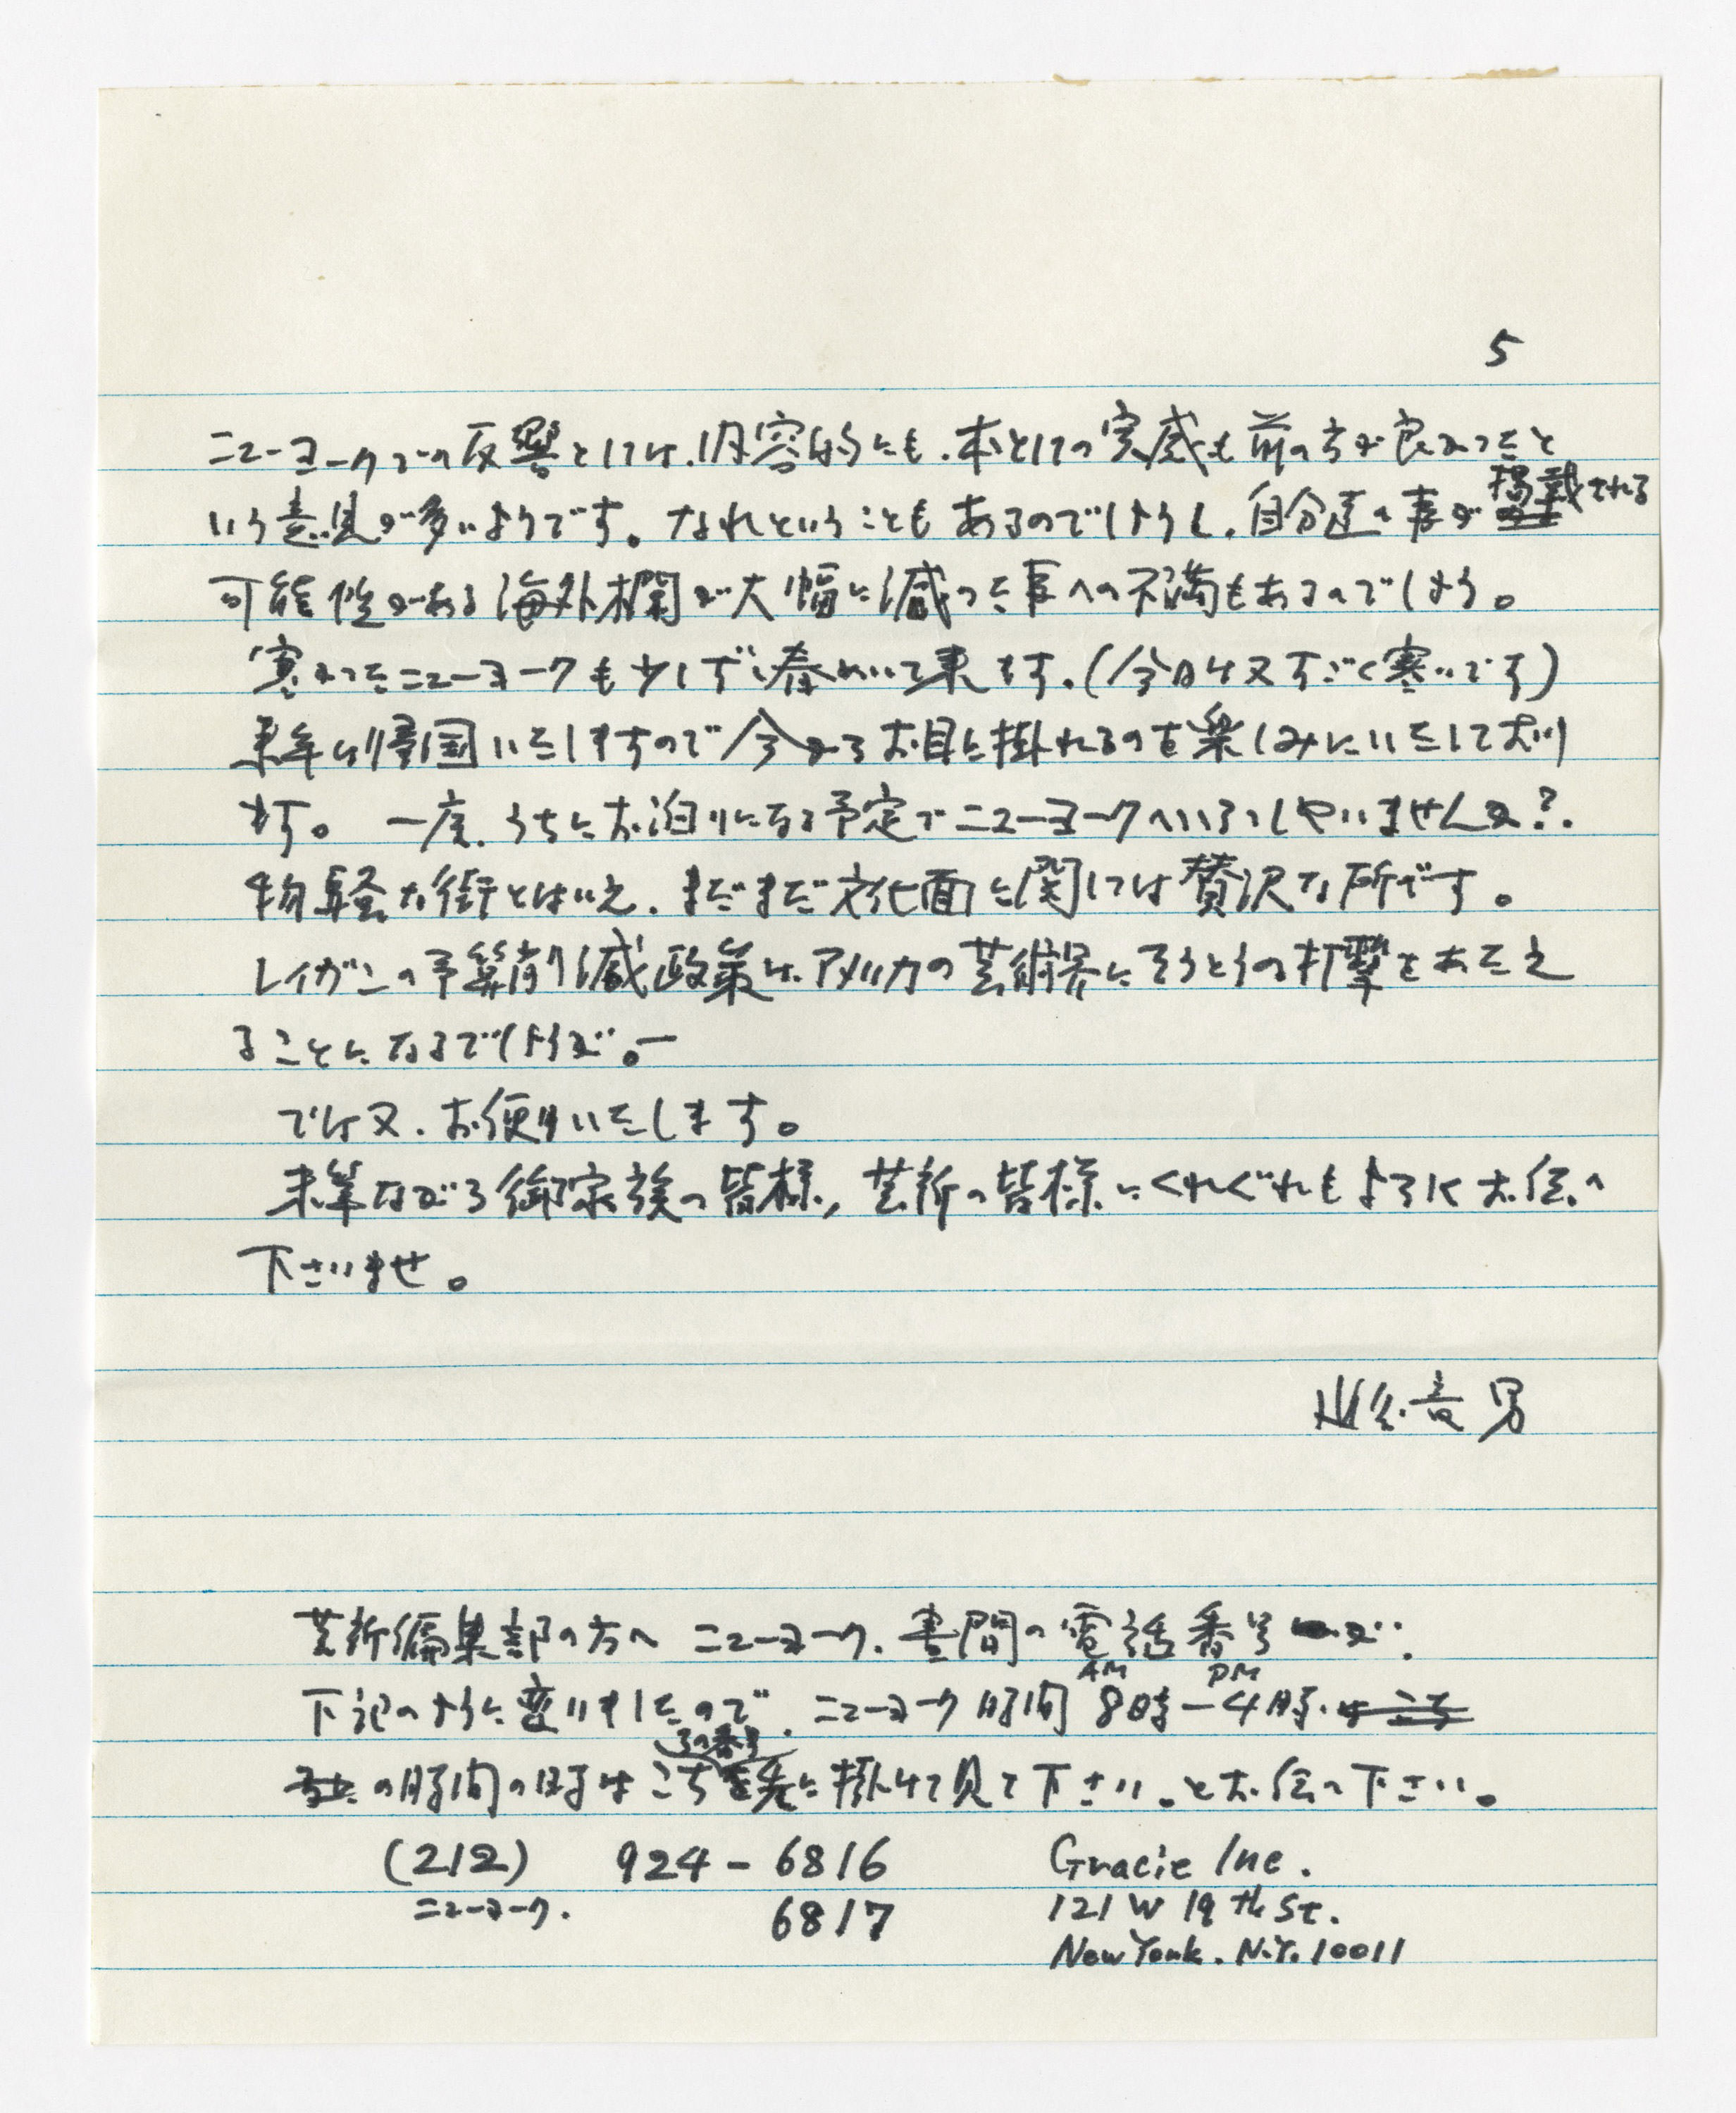 5
ニューヨークでの反響としては、内容的にも、本としての実感も前の方が良かったと
いう意見が多いようです。なれということもあるのでしょうし、自分達の事が掲載される
可能性がある海外欄が大幅に減った事への不満もあるのでしょう。
寒かったニューヨークも少しずつ春めいて来ます。(今日は又すごく寒いです)
来年は帰国いたしますので今からお目に掛れるのを楽しみにいたしており
ます。一度、うちにお泊りになる予定でニューヨークへいらっしゃいませんか?
物騒な街とはいえ、まだまだ文化面に関しては贅沢な所です。
レイガンの予算削減政策は、アメリカの芸術界にそうとうの打撃をあたえ
ることになるでしょうが。ー
では又、お便りいたします。
末筆ながら御家族の皆様、芸新の皆様にくれぐれもよろしくお伝へ
下さいませ。
音男
芸新編集部の方へ ニューヨーク、昼間の電話番号が、
下記のように変りましたので、ニューヨーク時間 AM 8時ーPM 4時
その番号
の時間の時はこちらに掛けて見て下さい。とお伝へ下さい。
(212) 924-6816 Gracie Inc.
ニューヨーク. 6817 121 W 19th St.
New York. N.Y. 10011